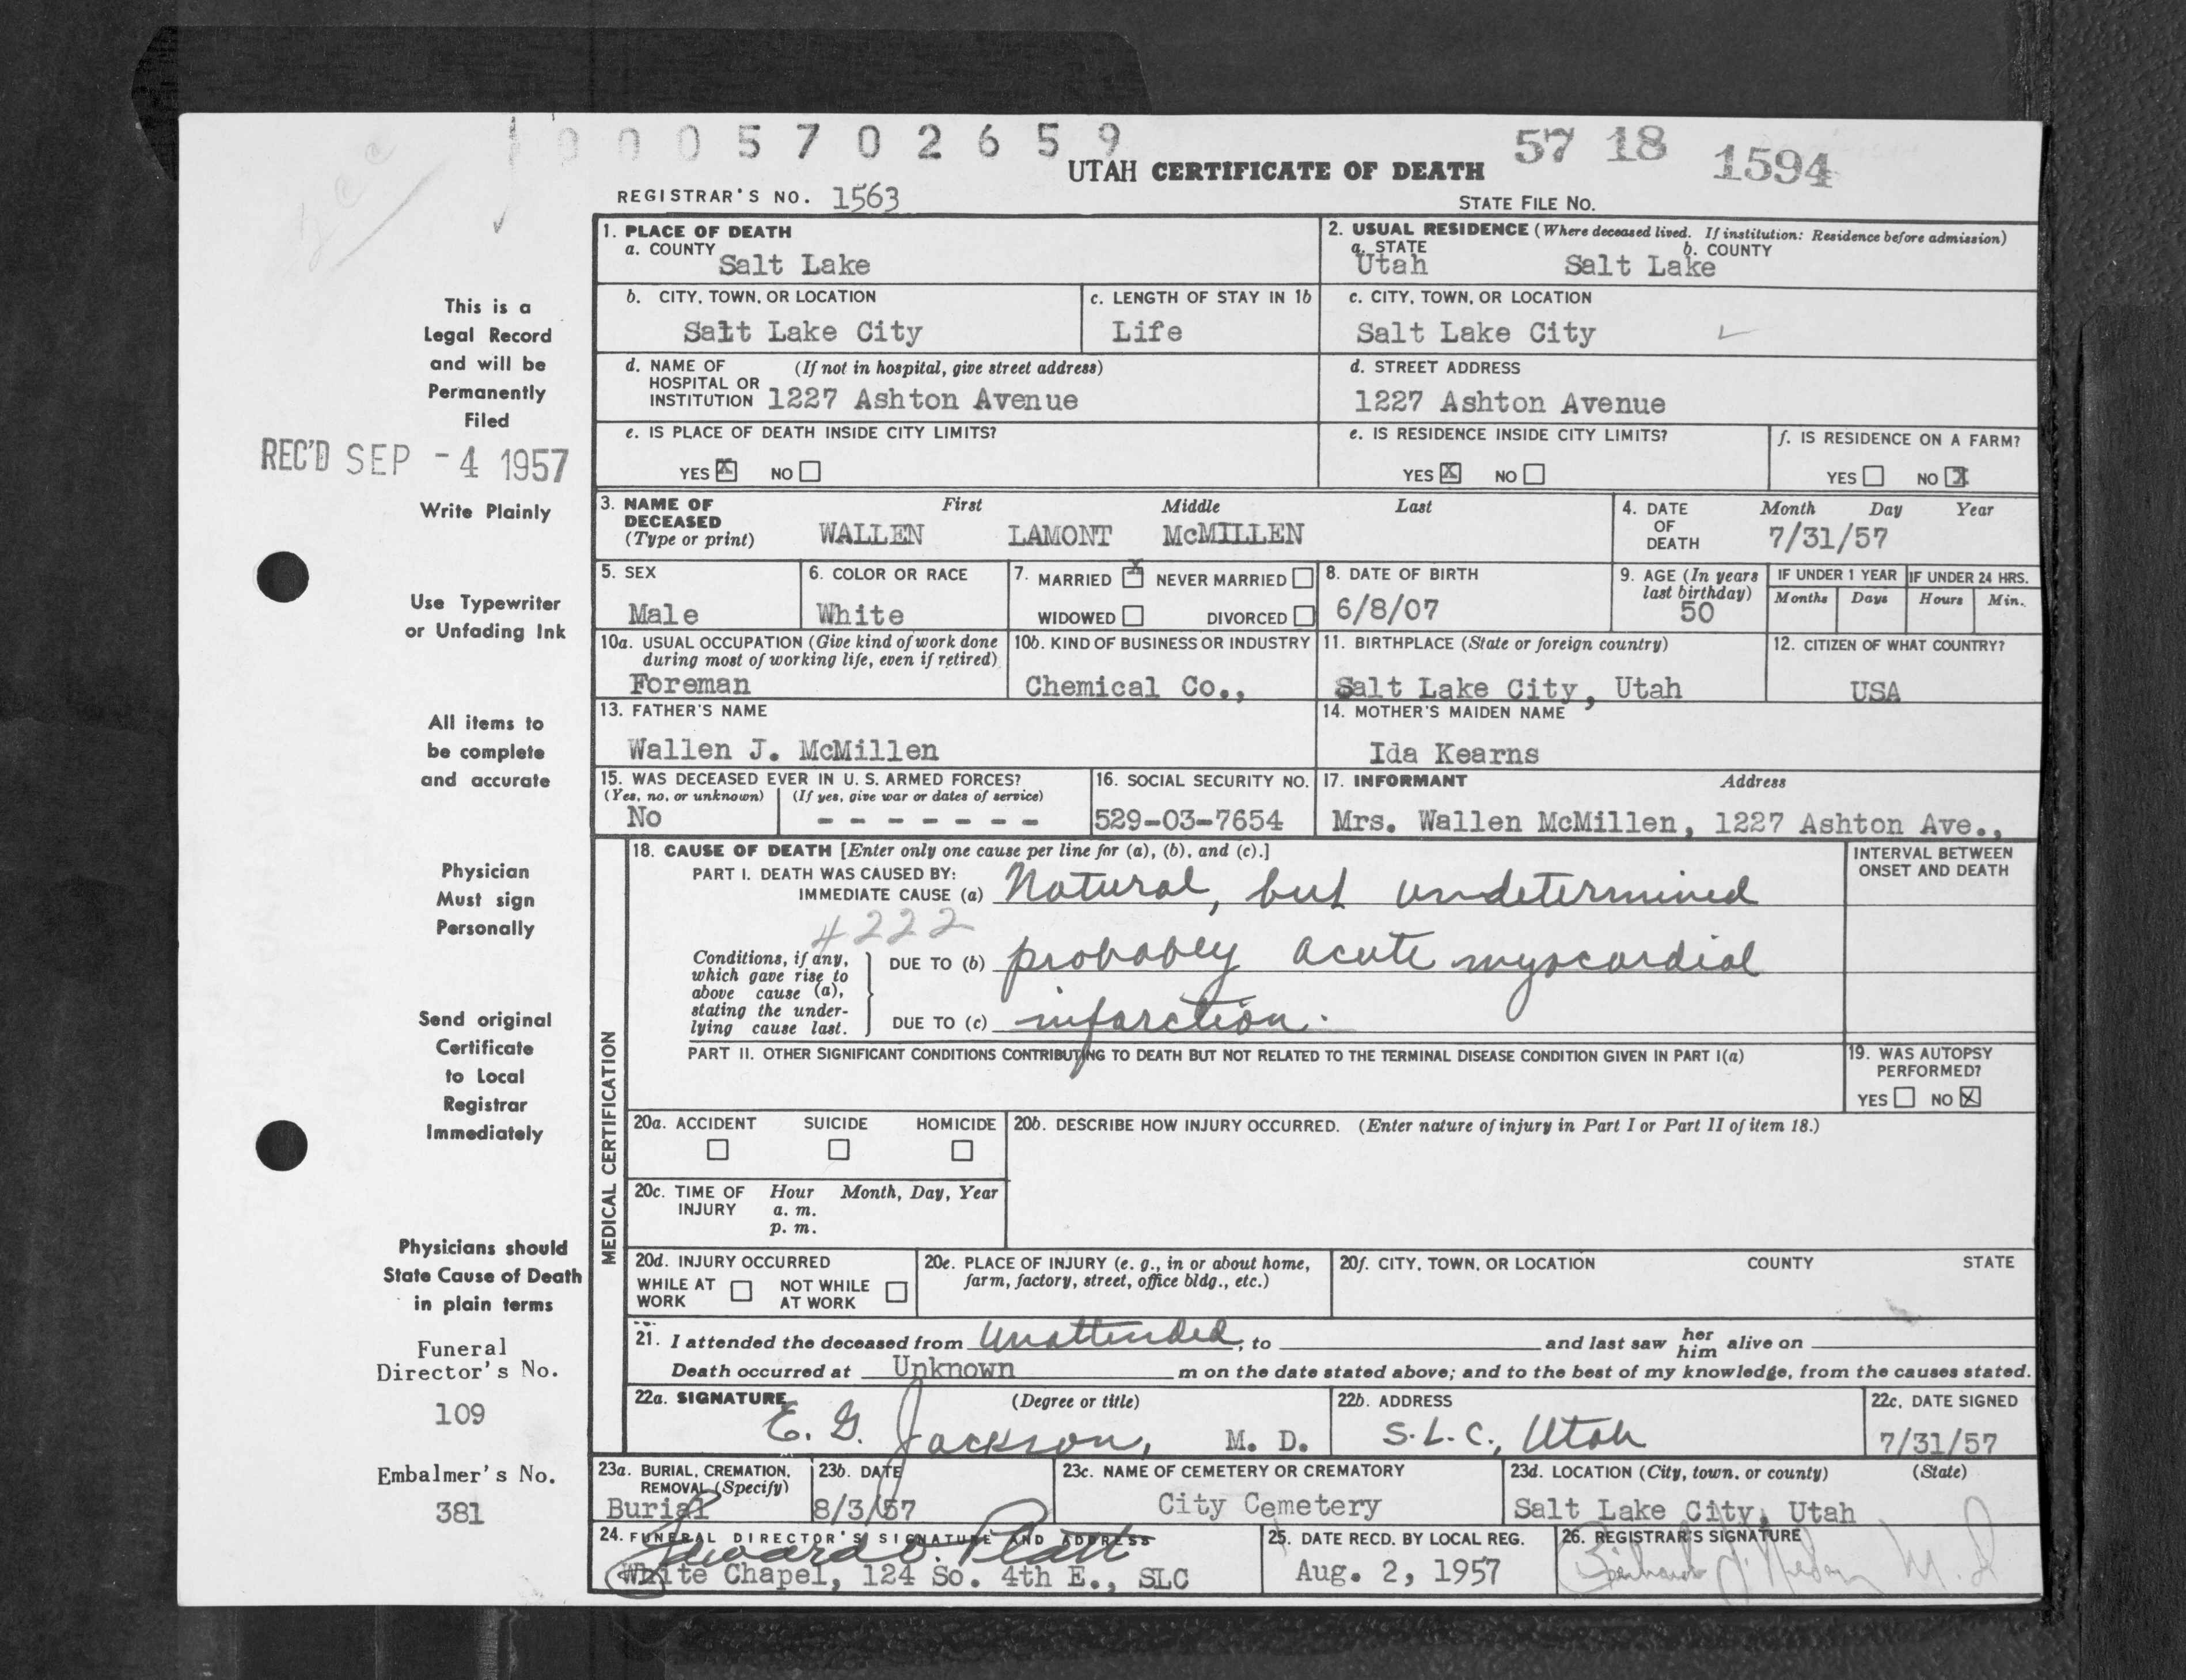 0 0 0 5 7 0 2 6 5 9
57 18 1594
UTAH CERTIFICATE OF DEATH
REGISTRAR'S NO. 1563
STATE FILE NO.
This is a
Legal Record
and will be
Permanently
Filed
REC'D SEP - 4 1957
Write Plainly
Use Typewriter
or Unfading Ink
All items to
be complete
and accurate
Physician
Must sign
Personally
Send original
Certificate
to Local
Registrar
Immediately
Physicians should
State Cause of Death
in plain terms
Funeral
Director's No.
109
Embalmer's No.
381
1. PLACE OF DEATH
a. COUNTY
Salt Lake
2. USUAL RESIDENCE (Where deceased lived. If institution: Residence before admission)
a. STATE b. COUNTY
Utah Salt Lake
b. CITY, TOWN, OR LOCATION
Salt Lake City
c. LENGTH OF STAY IN 1b
Life
c. CITY, TOWN, OR LOCATION
Salt Lake City
d. NAME OF (If not in hospital, give street address)
HOSPITAL OR
INSTITUTION 1227 Ashton Avenue
d. STREET ADDRESS
1227 Ashton Avenue
e. IS PLACE OF DEATH INSIDE CITY LIMITS?
YES X NO
e. IS RESIDENCE INSIDE CITY LIMITS?
YES X NO
f. IS RESIDENCE ON A FARM?
YES NO X
3. NAME OF First Middle Last
DECEASED
(Type or print) WALLEN LAMONT McMILLEN
4. DATE Month Day Year
OF
DEATH 7/31/57
5. SEX
Male
6. COLOR OR RACE
White
7. MARRIED X NEVER MARRIED
WIDOWED DIVORCED
8. DATE OF BIRTH
6/8/07
9. AGE (In years
last birthday)
50
IF UNDER 1 YEAR IF UNDER 24 HRS.
Months Days Hours Min.
10a. USUAL OCCUPATION (Give kind of work done
during most of working life, even if retired)
Foreman
10b. KIND OF BUSINESS OR INDUSTRY
Chemical Co.,
11. BIRTHPLACE (State or foreign country)
Salt Lake City, Utah
12. CITIZEN OF WHAT COUNTRY?
USA
13. FATHER'S NAME
Wallen J. McMillen
14. MOTHER'S MAIDEN NAME
Ida Kearns
15. WAS DECEASED EVER IN U. S. ARMED FORCES?
(Yes, no, or unknown) (If yes, give war or dates of service)
No - - - - - - -
16. SOCIAL SECURITY NO.
529-03-7654
17. INFORMANT Address
Mrs. Wallen McMillen, 1227 Ashton Ave.,
MEDICAL CERTIFICATION
18. CAUSE OF DEATH [Enter only one cause per line for (a), (b), and (c).]
INTERVAL BETWEEN
ONSET AND DEATH
PART I. DEATH WAS CAUSED BY:
IMMEDIATE CAUSE (a) Natural, but undetermined
4222
Conditions, if any,
which gave rise to
above cause (a),
stating the under-
lying cause last.
DUE TO (b) probably acute myocardial
DUE TO (c) infarction.
PART II. OTHER SIGNIFICANT CONDITIONS CONTRIBUTING TO DEATH BUT NOT RELATED TO THE TERMINAL DISEASE CONDITION GIVEN IN PART I(a)
19. WAS AUTOPSY
PERFORMED?
YES NO X
20a. ACCIDENT SUICIDE HOMICIDE
20b. DESCRIBE HOW INJURY OCCURRED. (Enter nature of injury in Part I or Part II of item 18.)
20c. TIME OF Hour Month, Day, Year
INJURY a. m.
p. m.
20d. INJURY OCCURRED
WHILE AT NOT WHILE
WORK AT WORK
20e. PLACE OF INJURY (e. g., in or about home,
farm, factory, street, office bldg., etc.)
20f. CITY, TOWN, OR LOCATION COUNTY STATE
21. I attended the deceased from Unattended, to and last saw her him alive on
Death occurred at Unknown m on the date stated above; and to the best of my knowledge, from the causes stated.
22a. SIGNATURE (Degree or title)
E. G. Jackson, M. D.
22b. ADDRESS
S.L.C., Utah
22c. DATE SIGNED
7/31/57
23a. BURIAL, CREMATION,
REMOVAL (Specify)
Burial
23b. DATE
8/3/57
23c. NAME OF CEMETERY OR CREMATORY
City Cemetery
23d. LOCATION (City, town, or county) (State)
Salt Lake City, Utah
24. FUNERAL DIRECTOR'S SIGNATURE AND ADDRESS
White Chapel, 124 So. 4th E., SLC
25. DATE RECD. BY LOCAL REG.
Aug. 2, 1957
26. REGISTRAR'S SIGNATURE